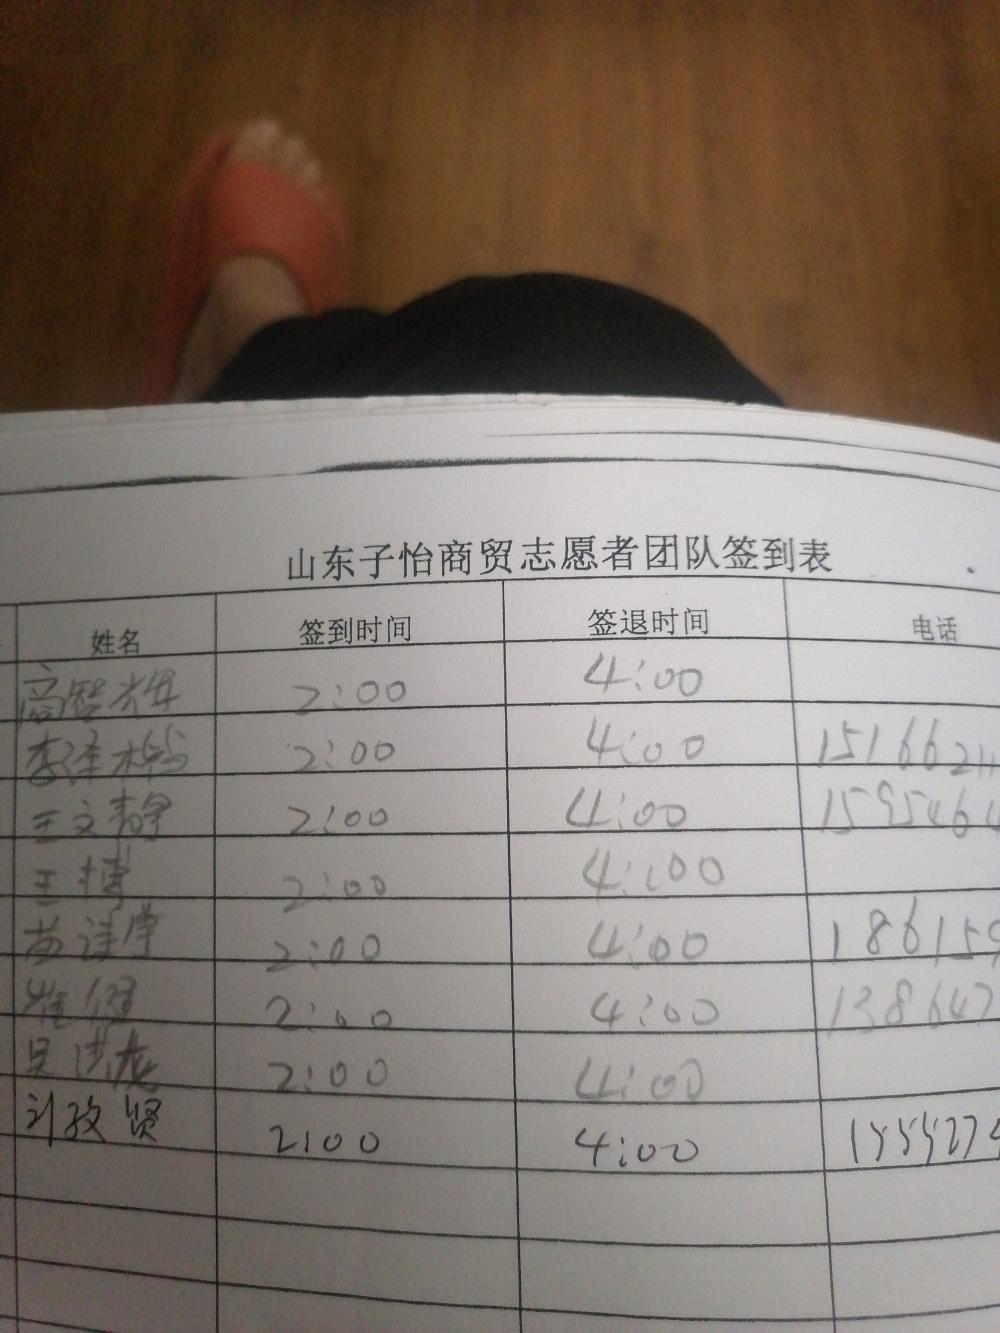 山东子怡商贸志愿者团队签到表
姓名 签到时间 签退时间 电话
2:00 4:00
李泽 2:00 4:00 15166211
王文静 2:00 4:00 1595464
王博 2:00 4:00
2:00 4:00 186159
崔健 2:00 4:00 138647
吴洪龙 2:00 4:00
刘孜贤 2:00 4:00 1555274